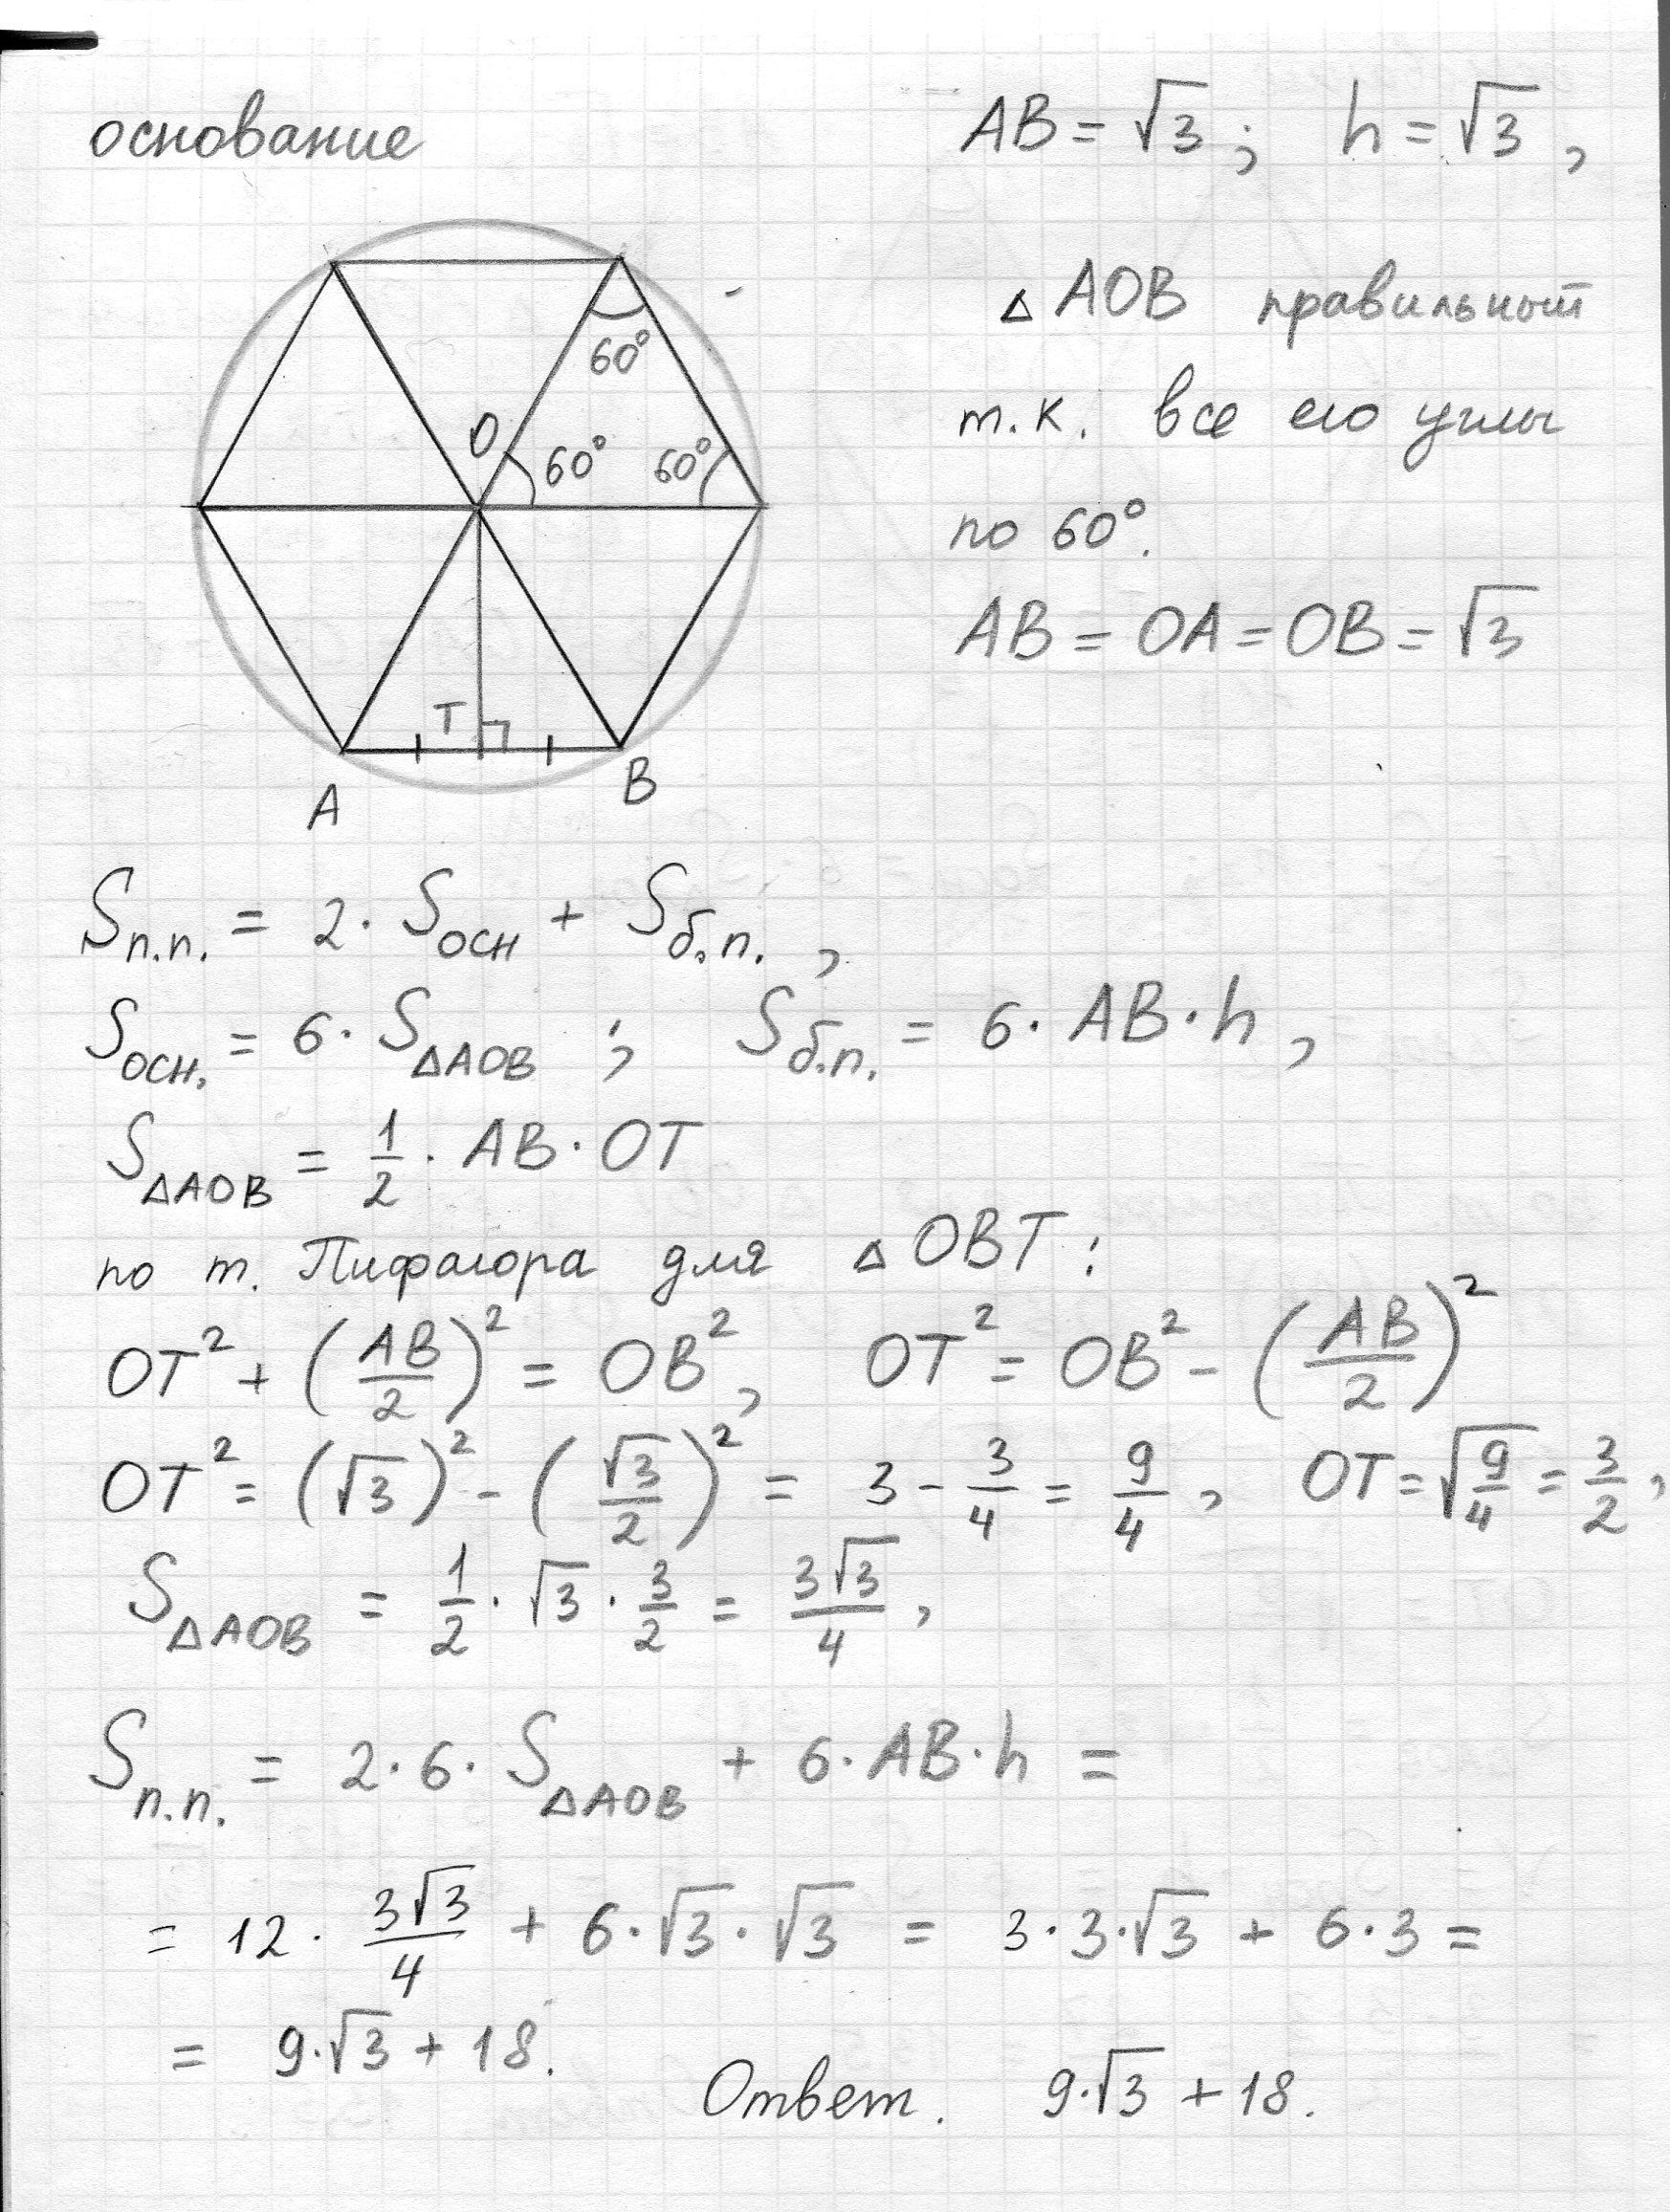 основание
AB = √3 ; h = √3 ,
△ AOB правильный
т.к. все его углы
по 60°.
AB = OA = OB = √3
60°
O
60° 60°
T
A
B
Sп.п. = 2 · Sосн + Sб.п. ,
Sосн. = 6 · S△AOB ; Sб.п. = 6 · AB · h ,
S△AOB = 1/2 · AB · OT
по т. Пифагора для △ OBT :
OT² + (AB/2)² = OB² , OT² = OB² - (AB/2)²
OT² = (√3)² - (√3/2)² = 3 - 3/4 = 9/4 , OT = √9/4 = 3/2 ,
S△AOB = 1/2 · √3 · 3/2 = 3√3/4 ,
Sп.п. = 2 · 6 · S△AOB + 6 · AB · h =
= 12 · 3√3/4 + 6 · √3 · √3 = 3 · 3 · √3 + 6 · 3 =
= 9 · √3 + 18.
Ответ. 9 · √3 + 18.